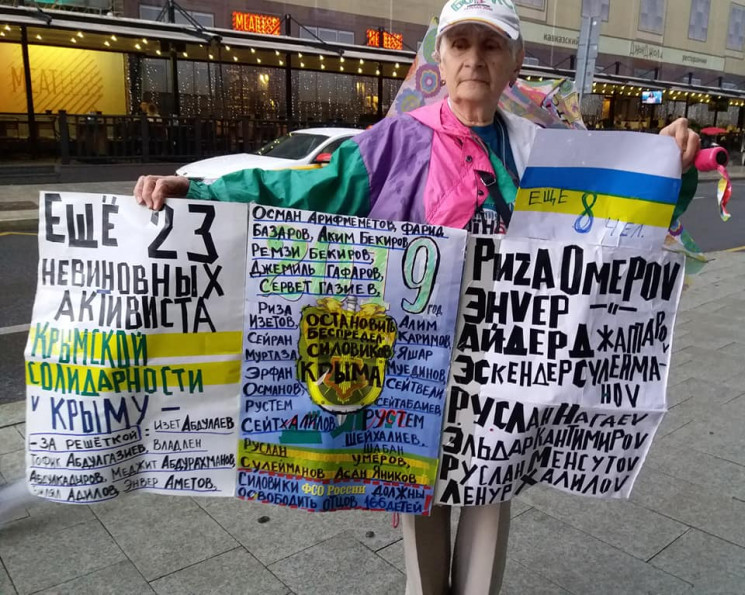 МЕАТЛ
КАВКАЗСКИЙ
ДжонДжоли
МЕАТ
ЕЩЁ 23
НЕВИНОВНЫХ
АКТИВИСТА
КРЫМСКОЙ
СОЛИДАРНОСТИ
V КРЫМУ —
— ЗА РЕШЁТКОЙ: ИЗЕТ АБДУЛАЕВ
ТОФИК АБДУЛГАЗИЕВ, ВЛАДЛЕН
АБДУЛКАДЫРОВ, МЕДЖИТ АБДУРАХМАНОВ,
БИЛЯЛ АДИЛОВ, ЭНВЕР АМЕТОВ,
ОСМАН АРИФМЕМЕТОВ, ФАРИД
БАЗАРОВ, АКИМ БЕКИРОВ
РЕМЗИ БЕКИРОВ,
ДЖЕМИЛЬ ГАФАРОВ,
СЕРВЕТ ГАЗИЕВ,
9
ГОД
РИЗА
ИЗЕТОВ,
СЕЙРАН
МУРТАЗА
ЭРФАН
ОСМАНОВ,
РУСТЕМ
СЕЙТХАЛИЛОВ,
ОСТАНОВИТЬ
БЕСПРЕДЕЛ
СИЛОВИКОВ
КРЫМА
АЛИМ
КАРИМОВ,
ЯШАР
МУЕДИНОВ,
СЕЙТВЕЛИ
СЕЙТАБДИЕВ
РУСТЕМ
ШЕЙХАЛИЕВ,
РУСЛАН ШАБАН
УМЕРОВ,
СУЛЕЙМАНОВ АСАН ЯНИКОВ
СИЛОВИКИ ФСО РОССИИ ДОЛЖНЫ
ОСВОБОДИТЬ ОТЦОВ, 166 ДЕТЕЙ
ЕЩЕ 8 ЧЕЛ.
РИZА ОМЕРОV
ЭНVЕР —"—
АЙДЕР ДЖАППАРОV
ЭСКЕНДЕР СУЛЕЙМА-
НОV
РУСЛАН НАГАЕV
ЭЛЬДАР КАНТИМИРОV
РУСЛАН МЕНСУТОV
ЛЕНУР ХАЛИЛОV